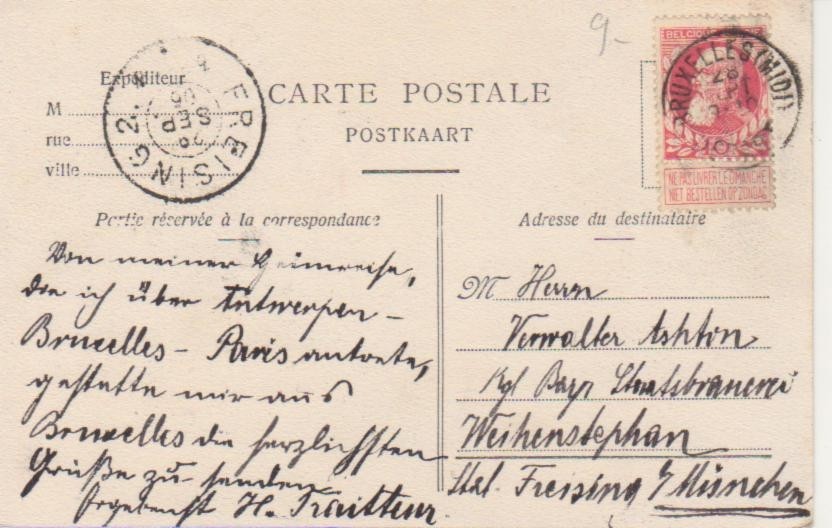 9-
BELGIQUE
BRUXELLES (MIDI)
28
1909
FREISING 2.
SEP.
Expéditeur
M
rue
ville
CARTE POSTALE
POSTKAART
NE PAS LIVRER LE DIMANCHE
NIET BESTELLEN OP ZONDAG
Partie réservée à la correspondance
Von meiner Heimreise,
die ich über Antwerpen –
Bruxelles – Paris antrete,
gestatte mir aus
Bruxelles die herzlichsten
Grüße zu senden
Ergebenst H. Traitteur.
Adresse du destinataire
M Herrn
Verwalter Ashton
Kgl Bayr Staatsbrauerei
Weihenstephan
Stat. Freising b/München